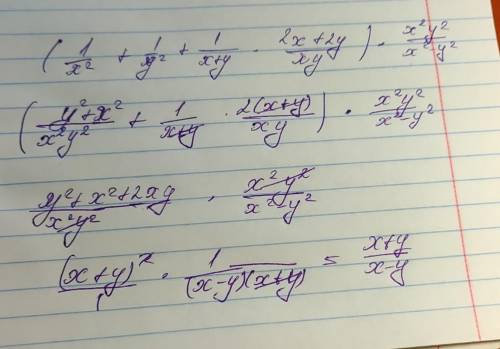 (1/x² + 1/y² + 1/(x+y) · (2x+2y)/(xy)) · x²y²/(x²-y²)
((y²+x²)/(x²y²) + 1/(x+y) · 2(x+y)/(xy)) · x²y²/(x²-y²)
(y²+x²+2xy)/(x²y²) · (x²-y²)/(x²-y²)
(x+y)²/1 · 1/((x-y)(x+y)) = (x+y)/(x-y)